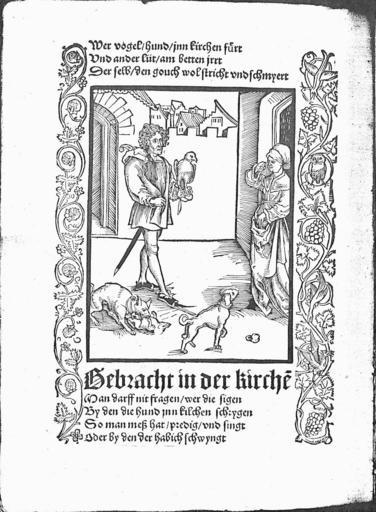 Wer vogel/hund/jnn kirchen fürt
Vnd ander lüt/am betten jrrt
Der selb/den gouch wol stricht vnd schmyert
Gebracht in der kirchē
Man darff nit fragen/wer die sigen
By den die hund jnn kilchen schrygen
So man meß hat/predig/vnd singt
Oder by den der habich schwyngt